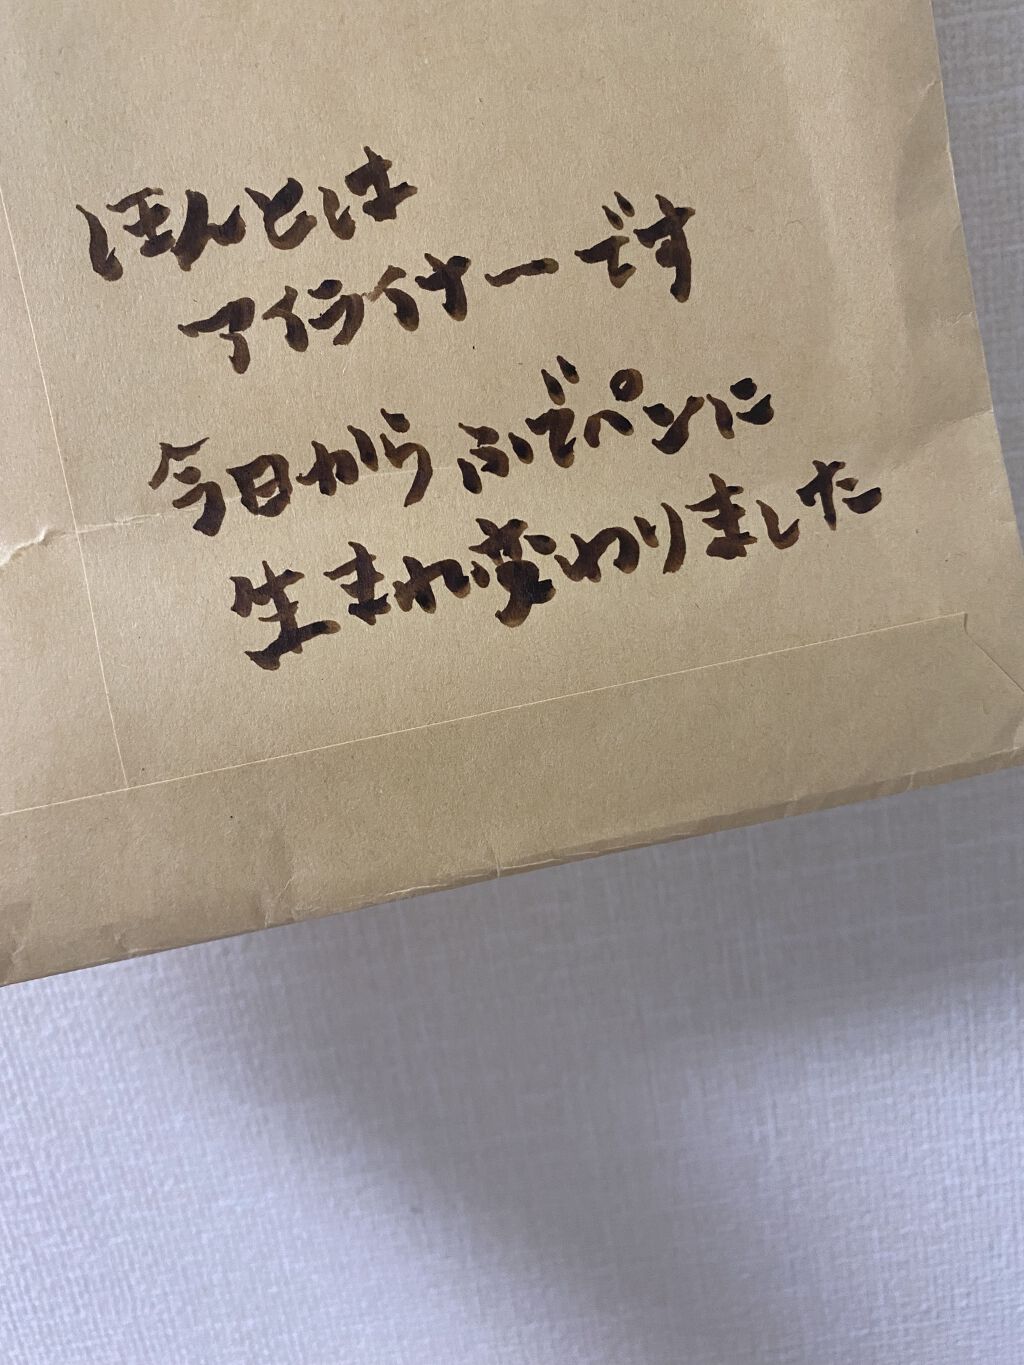 ほんとは
アイライナーです
今日から ふでペンに
生まれ変わりました